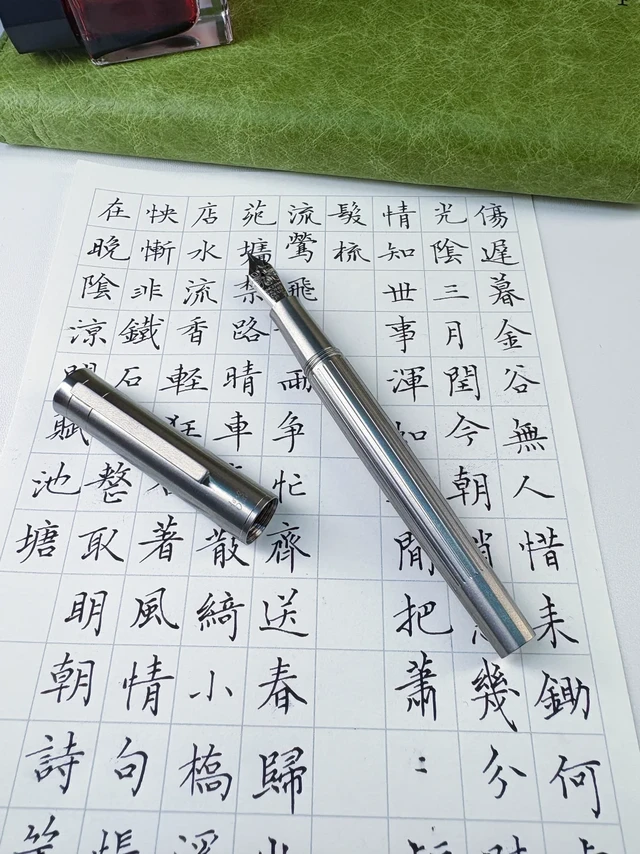 傷遲暮金谷無人惜耒鋤何
光陰三月閏今朝幾分
情知世事渾如間把蕭:
髮梳
流鶯飛雨争忙齊送春歸
苑墻禁路晴車散綺小橋溪
店水流香軽狂著風情句悵
怏慚非鐵石整取明朝詩等
在晚陰涼賦池塘